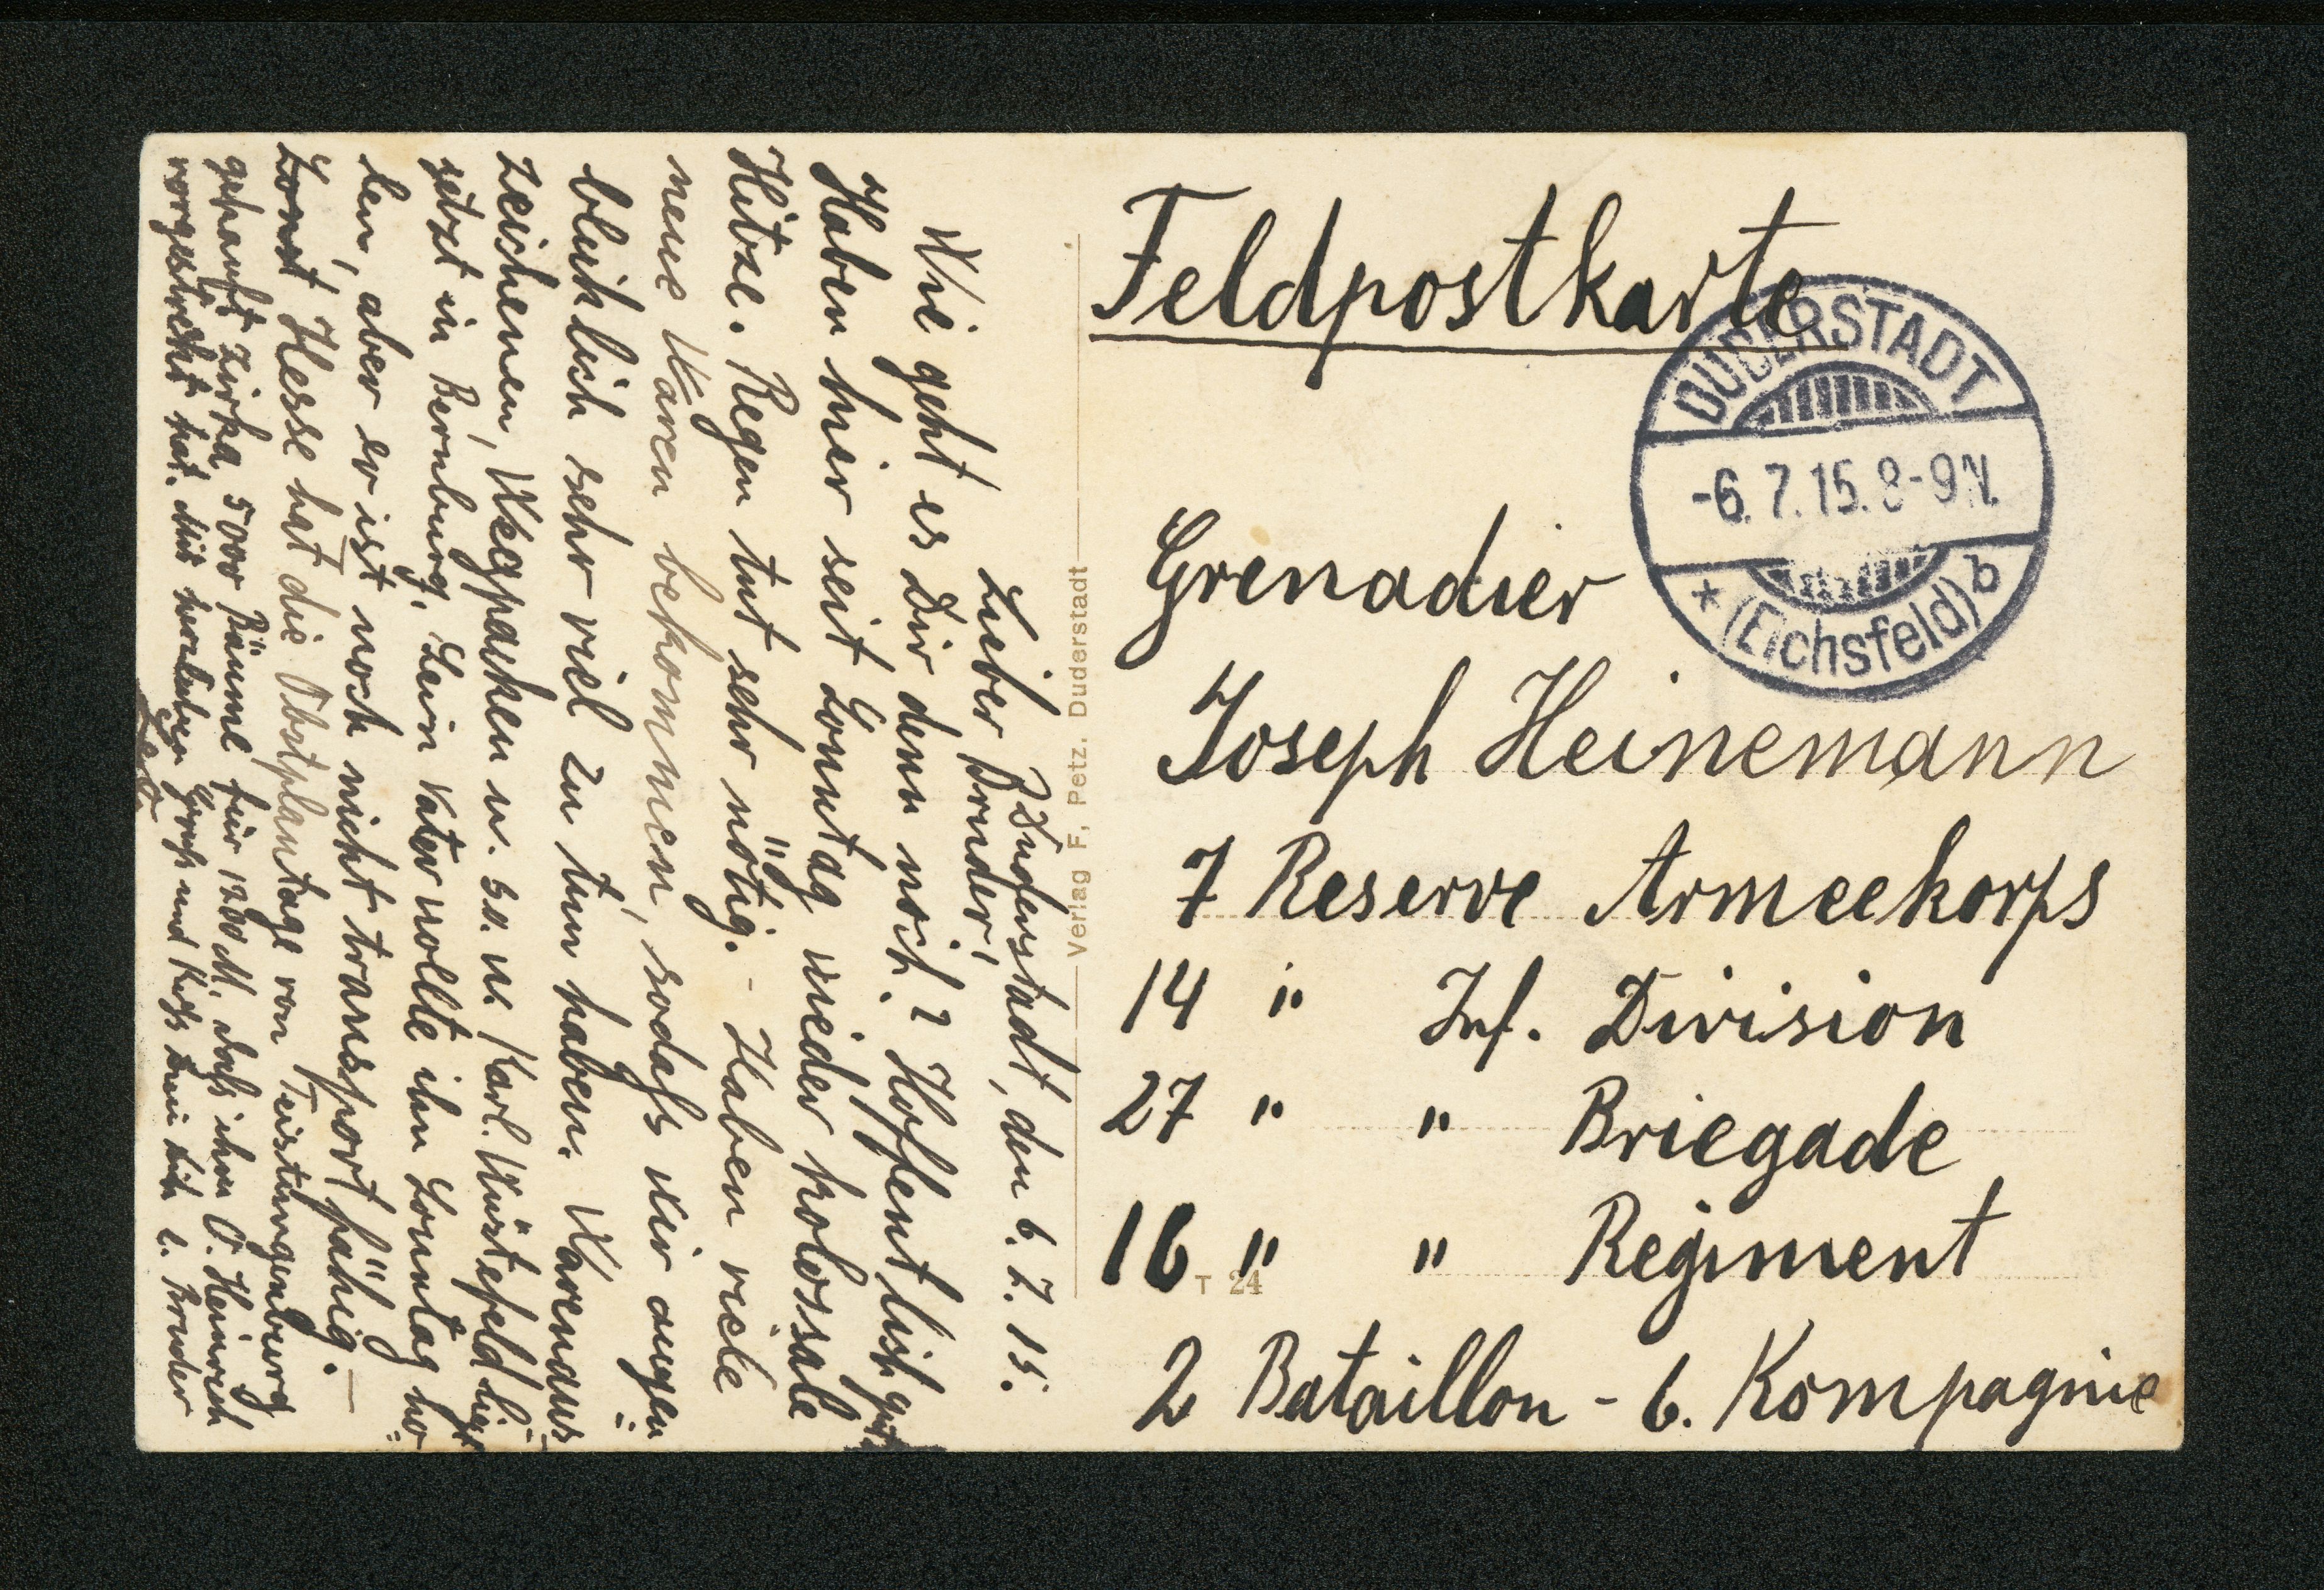 Feldpostkarte
DUDERSTADT
-6. 7. 15. 8-9 N.
* (Eichsfeld) b
Grenadier
Joseph Heinemann
7 Reserve Armeekorps
14 " Inf. Division
27 " " Briegade
16 " " Regiment
2 Bataillon - 6. Kompagnie
Verlag F. Petz, Duderstadt
T 24
Duderstadt, den 6. 7. 15.
Lieber Bruder!
Wie geht es Dir denn noch? Hoffentlich gut.
Haben hier seit Sonntag wieder kolossale
Hitze. Regen tut sehr nötig. - Haben viele
neue Waren bekommen, sodaß wir augen=
blicklich sehr viel zu tun haben. Warenaus=
zeichenen, Wegpacken u. s. w. Karl Wüstefeld liegt
jetzt in Bernburg. Sein Vater wollte ihn Sonntag ho=
len, aber er ist noch nicht transportfähig. —
Hesse hat die Obstplantage von Teistungenburg
gepauft zirka 5000 Bäume für 1200 M. daß ihm O. Heinrich
vorgestreckt hat. Mit Gruß und Kuß Dein Dich l. Bruder